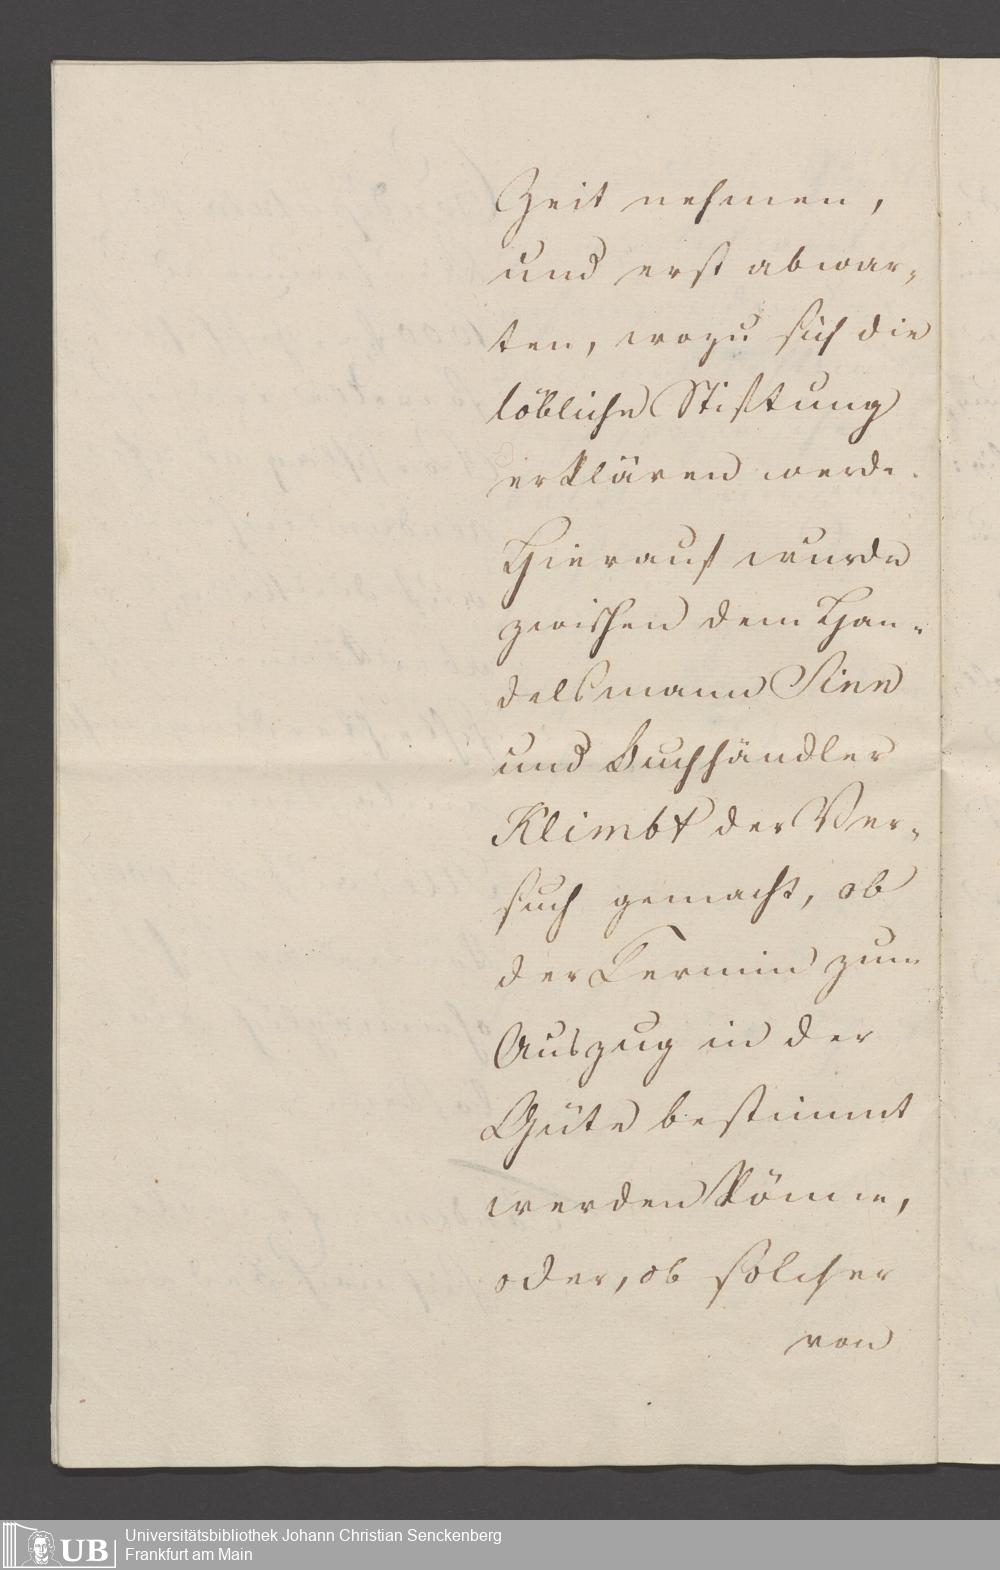 Zeit nehmen,
und erst abwar-
ten, wozu sich die
löbliche Stiftung
erklären werde.
Hierauf wurde
zwischen dem Han-
delsmann Sinn
und Buchhändler
Klimbt der Ver-
such gemacht, ob
der Termin zum
Auszug in der
Güte bestimmt
werden könne,
oder, ob solcher
von
UB
Universitätsbibliothek Johann Christian Senckenberg
Frankfurt am Main